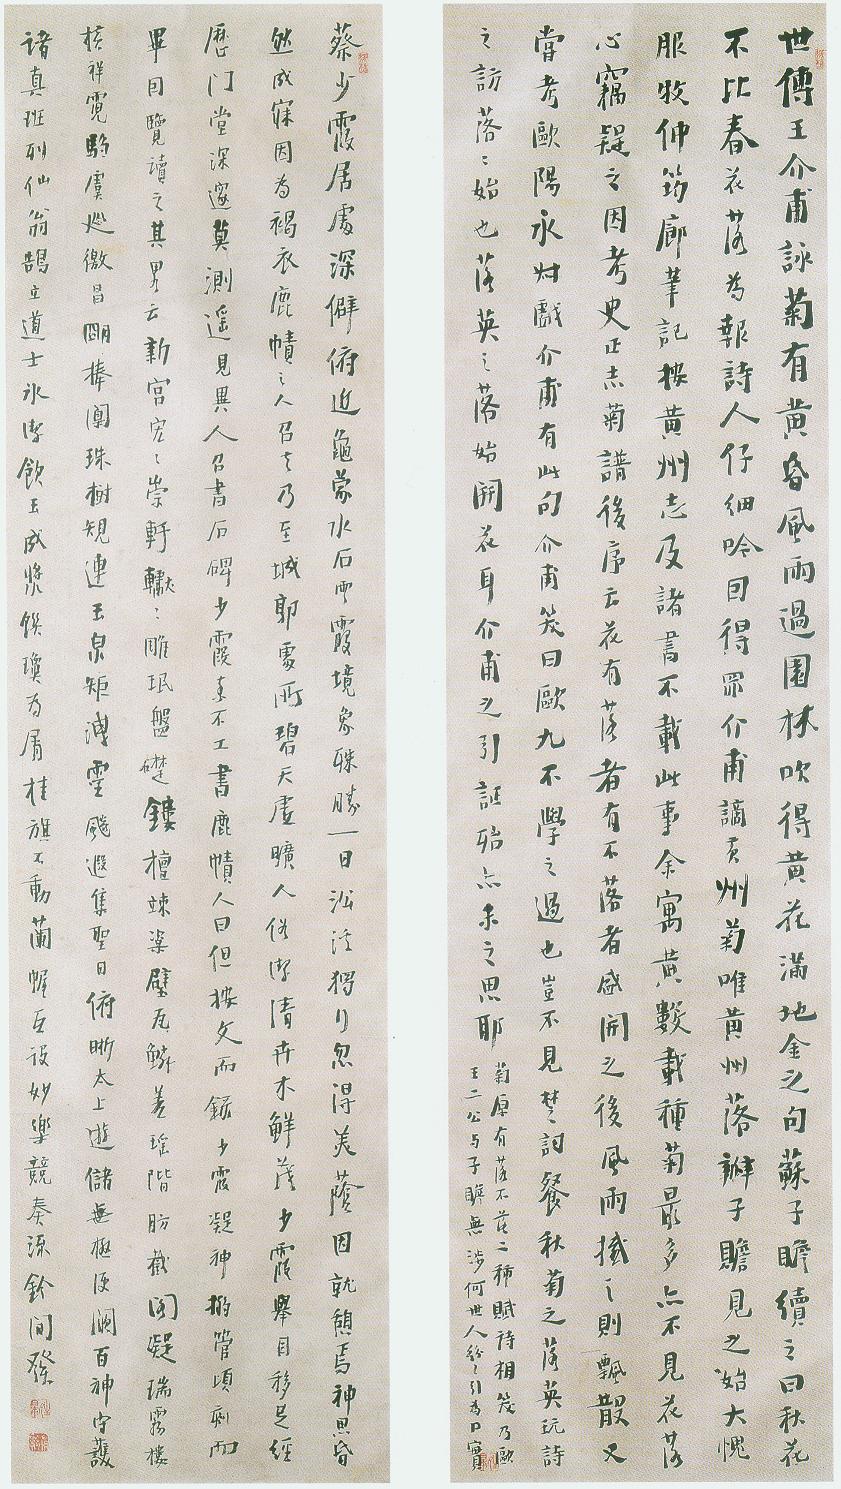 世傳王介甫詠菊有黃昏風雨過園林吹得黃花滿地金之句蘇子瞻續之曰秋花
不比春花落為報詩人仔細吟因得罪介甫謫黃州菊唯黃州落瓣子瞻見之始大愧
服牧仲筠廊筆記按黃州志及諸書不載此事余寓黃數載種菊最多亦不見花落
心竊疑之因考史正志菊譜後序云花有落者有不落者盛開之後風雨撼之則飄散又
嘗考歐陽永叔戲介甫有此句介甫笑曰歐九不學之過也豈不見楚詞餐秋菊之落英玩詩
之訪落落始也落英之落始開花耳介甫之引証殆亦未之思耶
菊原有落不落二種賦詩相笑乃歐
王二公與子瞻無涉何世人紛紛引為口實
蔡少霞居處深僻俯近龜蒙水石雲霞境象殊勝一日沿溪獨行忽得美蔭因就憩焉神思昏
然成寐因為褐衣鹿幘之人召去乃至城郭處所碧天虛曠人俗潔清卉木鮮茂少霞舉目移足經
歷門堂深邃莫測遥見異人召書石碑少霞素不工書鹿幘人曰但按文而錄少霞凝神搦管頃刻而
畢因覽讀之其畧云新宮宏宏崇軒轍轍雕珉盤礎鏤檀竦楶璧瓦鱗差瑤階肪截閣凝瑞霧樓
橫祥霓騶虞巡徼昌明捧闑珠樹規連玉泉矩洩靈飈遐集聖日俯晰太上遊儲無極便闕百神守護
諸真班列仙翁鵠立道士氷潔飲玉成漿饌瓊為屑桂旗不動蘭幄互設妙樂競奏流鈴間發